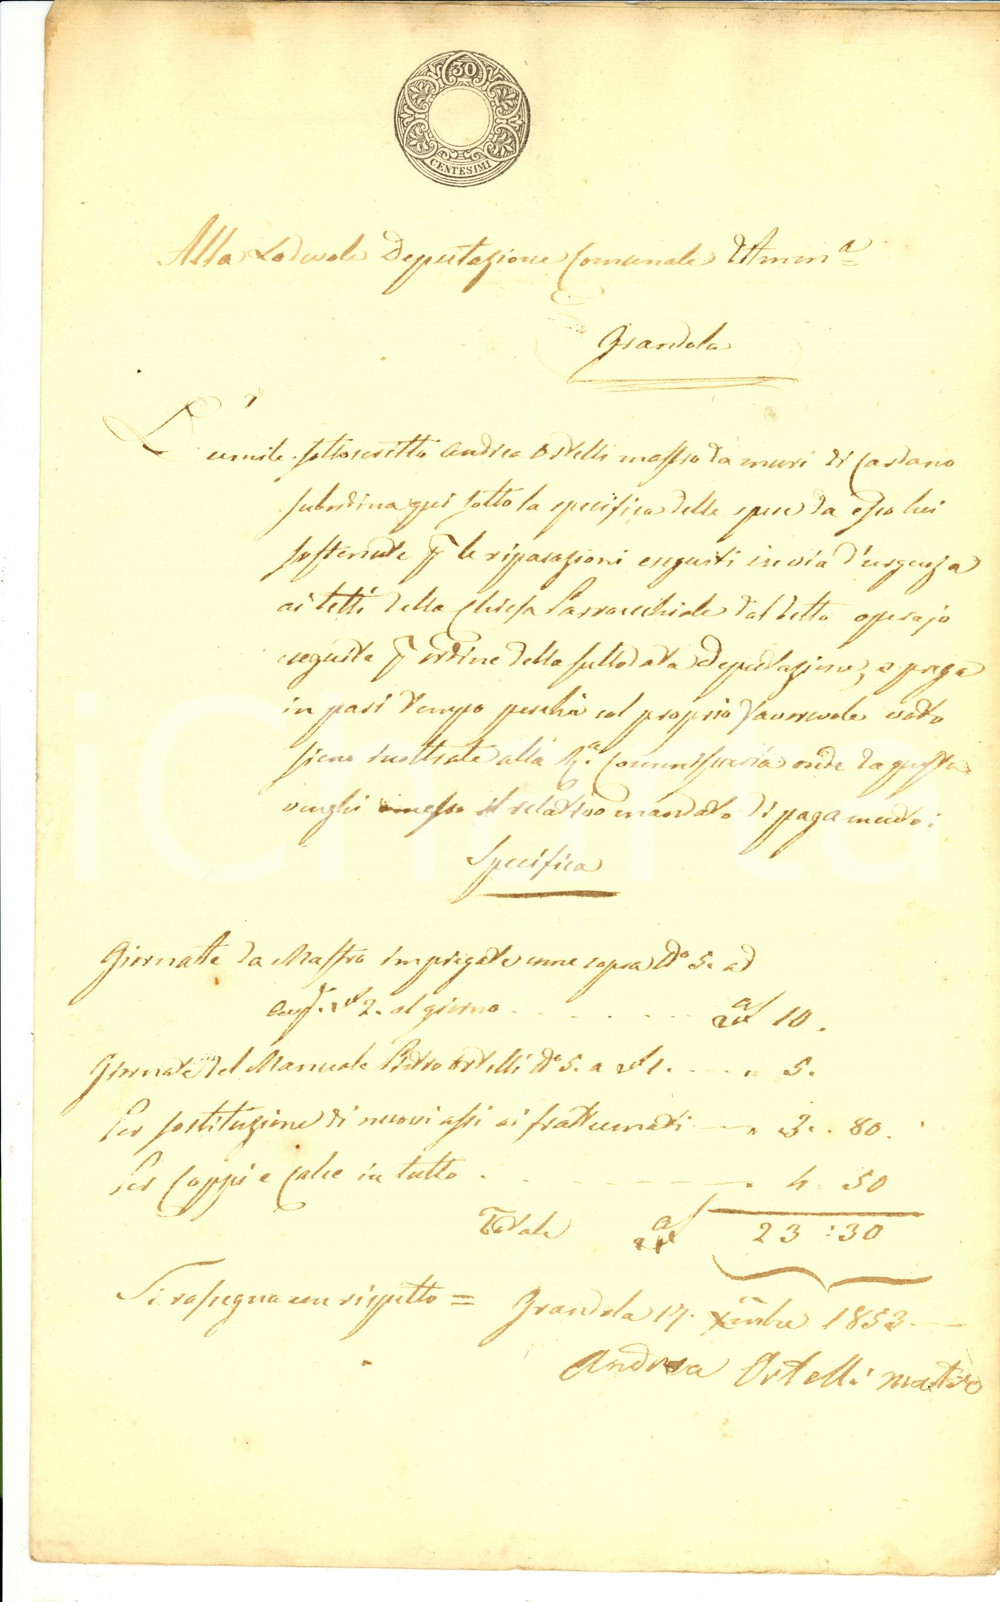 30
CENTESIMI
Alla Lodevole Deputazione Comunale d'Amm.a
Grandola
L'umile sottoscritto Andrea Ortelli mastro da muri di Cardano
subordina qui sotto la specifica delle spese da esso lui
sostenute p le riparazioni eseguiti in via d'urgenza
ai tetti della Chiesa Parrocchiale dal detto operajo
eseguite p ordine della sullodata Deputazione, e prega
in pari tempo perchè col proprio favorevole voto
siene inoltrate alla R.a Commissaria onde da questa
venghi emesso il relativo mandato di pagamento:
Specifica
Giornate da Mastro impiegate come sopra N.o 5. ad
2. al giorno 10.
Giornate del Manuale Pietro Ortelli N.o 5. a 1. " 5.
Per sostituzione di nuovi assi ai frattumati " 3. 80.
Per Coppi e Calce in tutto " 4 50
Totale 23:30
Si rassegna con rispetto = Grandola 17. Xmbre 1853.
Andrea Ortelli mastro